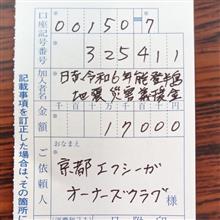 口座記号番号
00150 7
325411
加入者名
日赤令和6年能登半島
地震災害義援金
金額
千 百 十 万 千 百 十 円
17000
ご依頼人
おなまえ
京都エフシーガ
オーナーズクラブ
様
記載事項を訂正した場合は、その箇所に